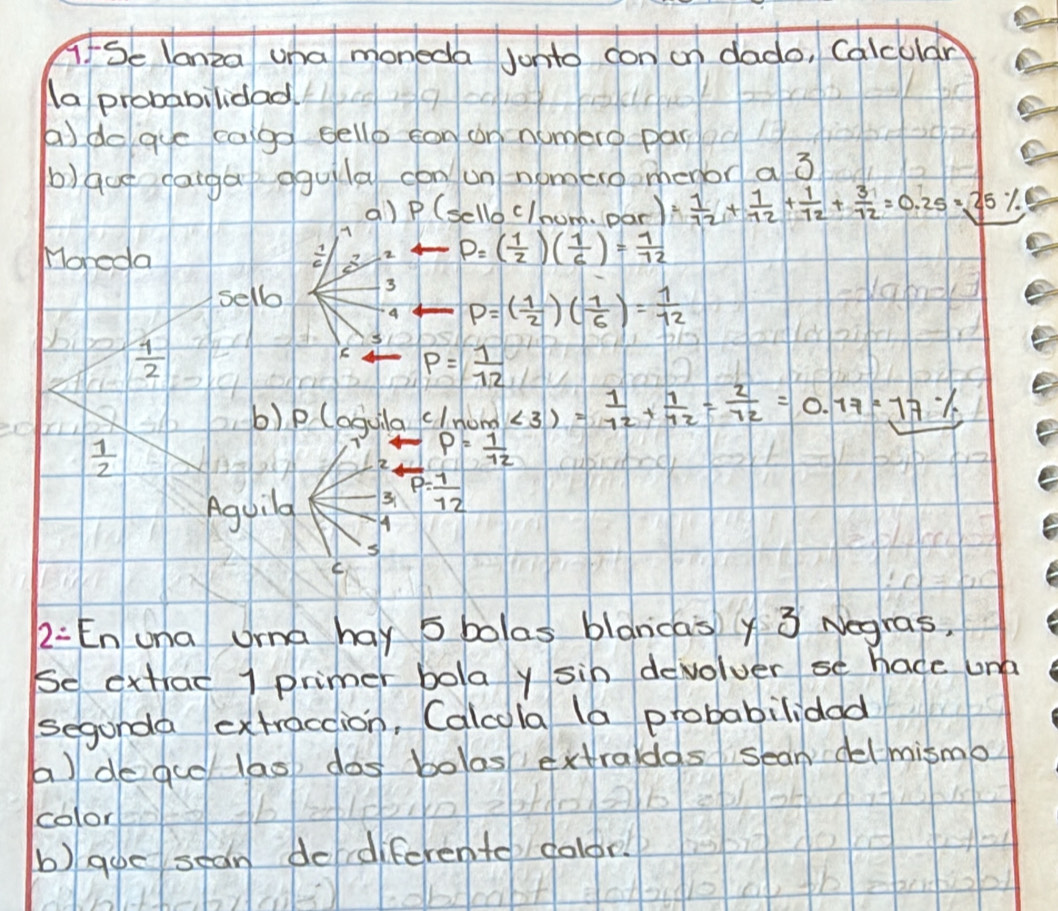 1.- Se lanza una moneda junto con un dado, Calcular
la probabilidad.
a) de que caiga sello con un numero par
b) que caiga aguila con un numero menor a 3
a) P(sello c/num. par) = 1/12 + 1/12 + 1/12 + 3/12 = 0.25 = 25%
Moneda
1/6 1
1/6 2 ← P= (1/2)(1/6) = 1/12
sello
3
4 ← P= (1/2)(1/6) = 1/12
5
1/2
6 ← P= 1/12
b) P(aguila c/num <3) = 1/12 + 1/12 = 2/12 = 0.17 = 17%
1/2
1 ← P= 1/12
2 ← P= 1/12
Aguila
3
4
5
6
2.- En una urna hay 5 bolas blancas y 3 Negras,
Se extrae 1 primer bola y sin devolver se hace una
segunda extracción, Calcula la probabilidad
a) de que las dos bolas extraidas sean del mismo
color
b) que sean de diferente color.